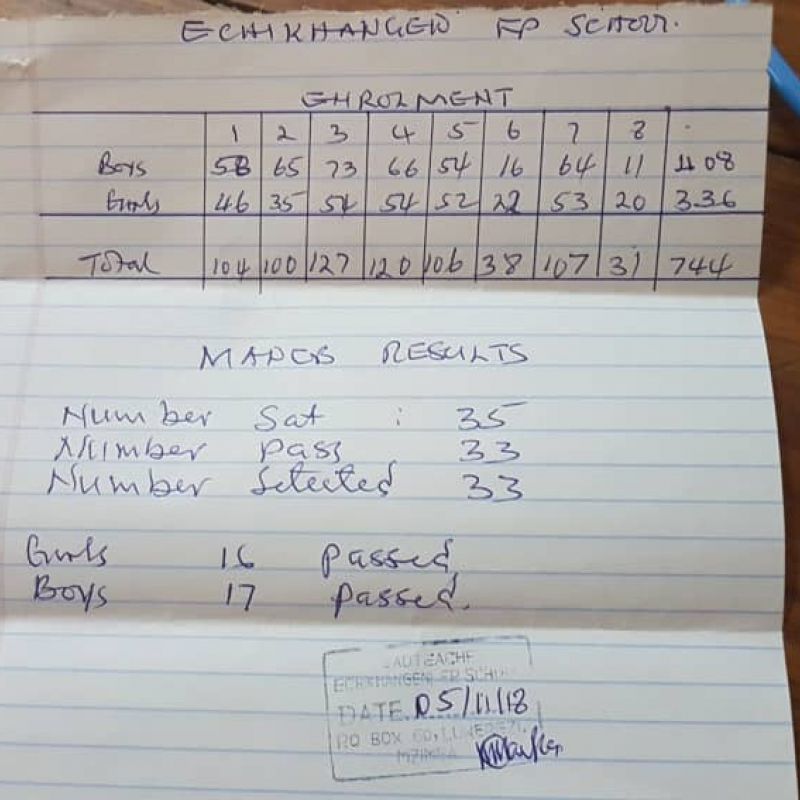 ECHIKHANGENI FP SCHOOL.
ENROLMENT
1 2 3 4 5 6 7 8
Boys 58 65 73 66 54 16 64 11 408
Girls 46 35 54 54 52 22 53 20 336
Total 104 100 127 120 106 38 107 31 744
MANEB RESULTS
Number Sat : 35
Number pass 33
Number Selected 33
Girls 16 passed
Boys 17 passed.
ECHIKHANGENI FP SCHOOL
DATE 05/11/18
PO BOX 60,